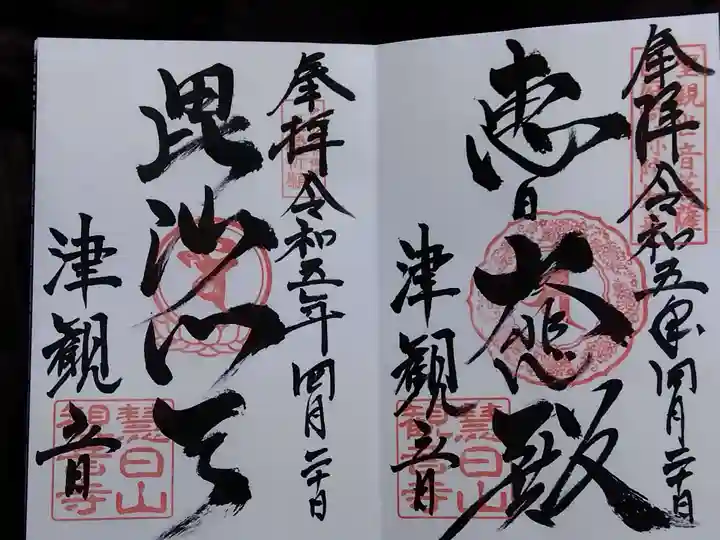 奉拝 令和五年四月二十日
恵日 大悲殿
津観音
慧日山
観音寺
奉拝 令和五年四月二十日
毘沙門天
津観音
慧日山
観音寺